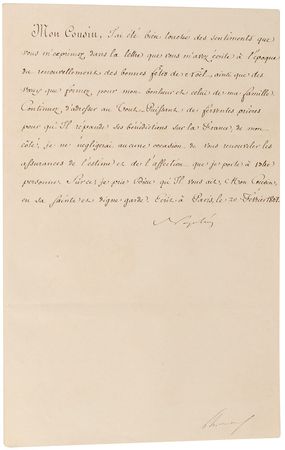 Mon Cousin, J'ai été bien touché des sentiments que
vous m'exprimez dans la lettre que vous m'avez écrite à l'époque
du renouvellement des bonnes fêtes de Noël, ainsi que des
vœux que formez pour mon bonheur et celui de ma famille.
Continuez d'adresser au Tout Puissant de ferventes prières
pour qu'Il répande ses bénédictions sur la France; de mon
côté, je ne négligerai aucune occasion de vous renouveler les
assurances de l'estime et de l'affection que je porte à votre
personne. Sur ce, je prie Dieu qu'Il vous ait, Mon Cousin,
en sa sainte et digne garde. Ecrit à Paris, le 20 Février
Napoléon